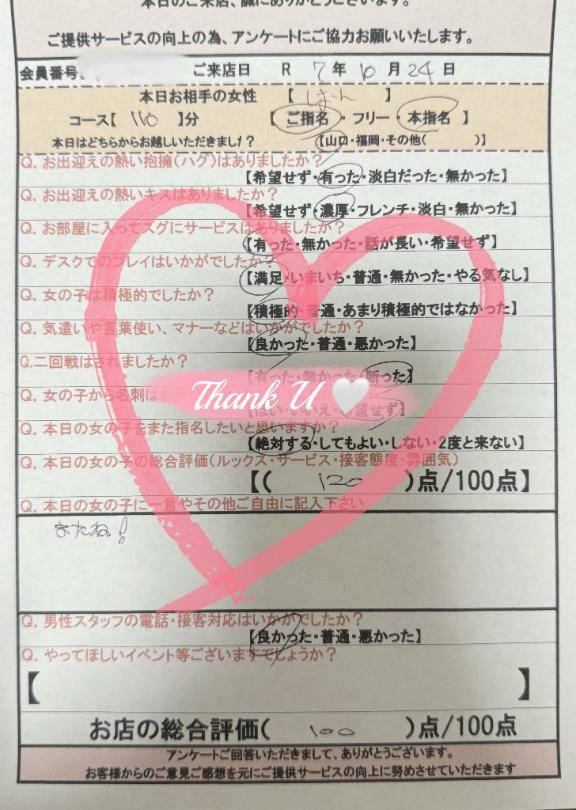 本日のご来店、誠にありがとうございます。
ご提供サービスの向上の為、アンケートにご協力お願いいたします。
会員番号 ご来店日 R 7年 10月 24日
本日お相手の女性 【 】
コース【 110 】分 【 ご指名・フリー・本指名 】
本日はどちらからお越しいただきました? 【山口・福岡・その他( )】
Q. お出迎えの熱い抱擁(ハグ)はありましたか?
【希望せず・有った・淡白だった・無かった】
Q. お出迎えの熱いキスはありましたか?
【希望せず・濃厚・フレンチ・淡白・無かった】
Q. お部屋に入ってスグにサービスはありましたか?
【有った・無かった・話が長い・希望せず】
Q. デスクでのプレイはいかがでしたか?
【満足・いまいち・普通・無かった・やる気なし】
Q. 女の子は積極的でしたか?
【積極的・普通・あまり積極的ではなかった】
Q. 気遣いや言葉使い、マナーなどはいかがでしたか?
【良かった・普通・悪かった】
Q.二回戦はされましたか?
【有った・無かった・断った】
Q. 女の子から名刺はお
Thank U
【はい・いいえ・希望せず】
Q. 本日の女の子をまた指名したいと思いますか?
【絶対する・してもよい・しない・2度と来ない】
Q. 本日の女の子の総合評価(ルックス・サービス・接客態度・雰囲気)
【( 120 )点/100点】
Q. 本日の女の子に一言やその他ご自由に記入下さい
またね!
Q. 男性スタッフの電話・接客対応はいかがでしたか?
【良かった・普通・悪かった】
Q. やってほしいイベント等ございますでしょうか?
【 】
お店の総合評価( 100 )点/100点
アンケートご回答いただきまして、ありがとうございます。
お客様からのご意見ご感想を元にご提供サービスの向上に努めさせていただきます